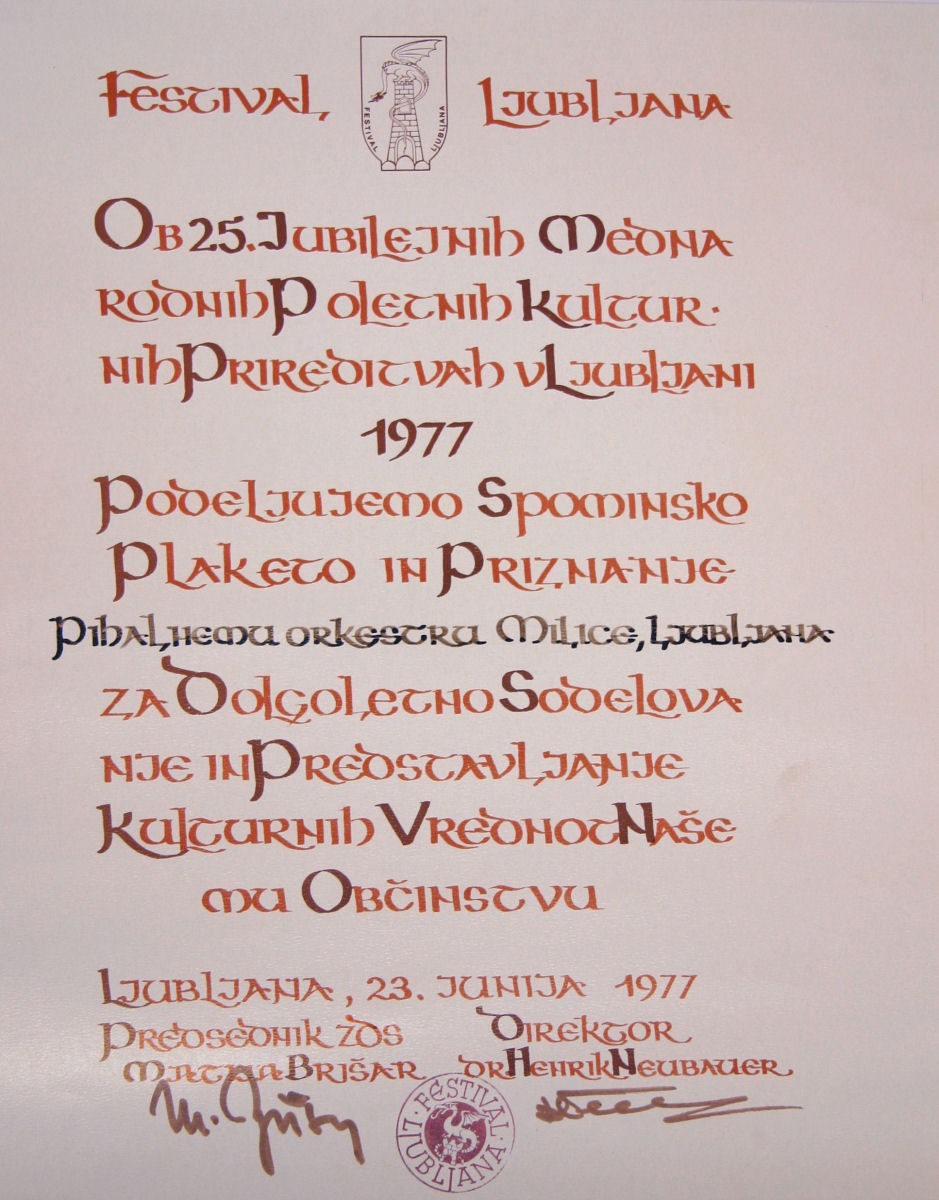 Festival, Ljubljana
FESTIVAL LJUBLJANA
Ob 25. Jubilejnih Medna
rodnih Poletnih Kultur.
nih Prireditvah v Ljubljani
1977
Podeljujemo Spominsko
Plaketo in Priznanje
Pihalnemu orkestru Milice, Ljubljana
za Dolgoletno Sodelova
nje in Predstavljanje
Kulturnih Vrednot Naše
mu Občinstvu
Ljubljana, 23. junija 1977
Predsednik ZDS Direktor
Matija Brišar dr Henrik Neubauer
FESTIVAL · LJUBLJANA